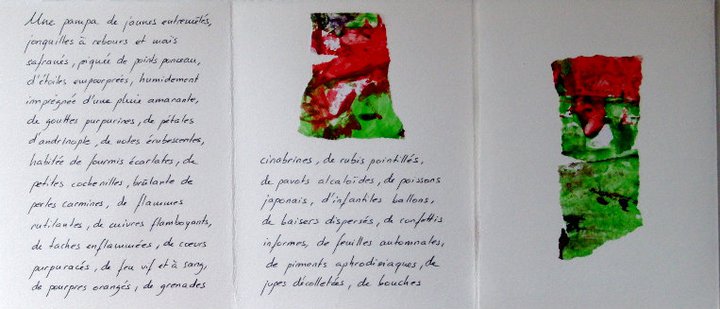 Une pampa de jaunes entremêlés,
jonquilles à rebours et maïs
safranés, piquée de points ponceau,
d'étoiles empourprées, humidement
imprégnée d'une pluie amarante,
de gouttes purpurines, de pétales
d'andrinople, de notes érubescentes,
habitée de fourmis écarlates, de
petites cochenilles, brûlante de
perles carmines, de flammes
rutilantes, de cuivres flamboyants,
de taches enflammées, de cœurs
purpuracés, de feu vif et à sang,
de pourpres orangés, de grenades
cinabrines, de rubis pointillés,
de pavots alcaloïdes, de poissons
japonais, d'infantiles ballons,
de baisers dispersés, de confettis
informes, de feuilles automnales,
de piments aphrodisiaques, de
jupes décolletées, de bouches